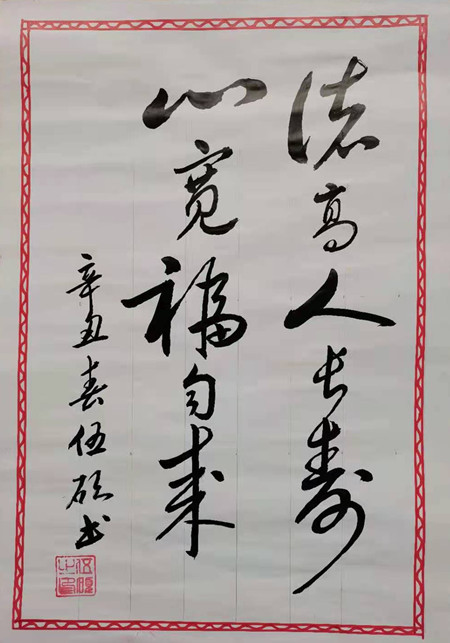 德高人长寿
心宽福自来
辛丑春伍硕书
伍硕之印